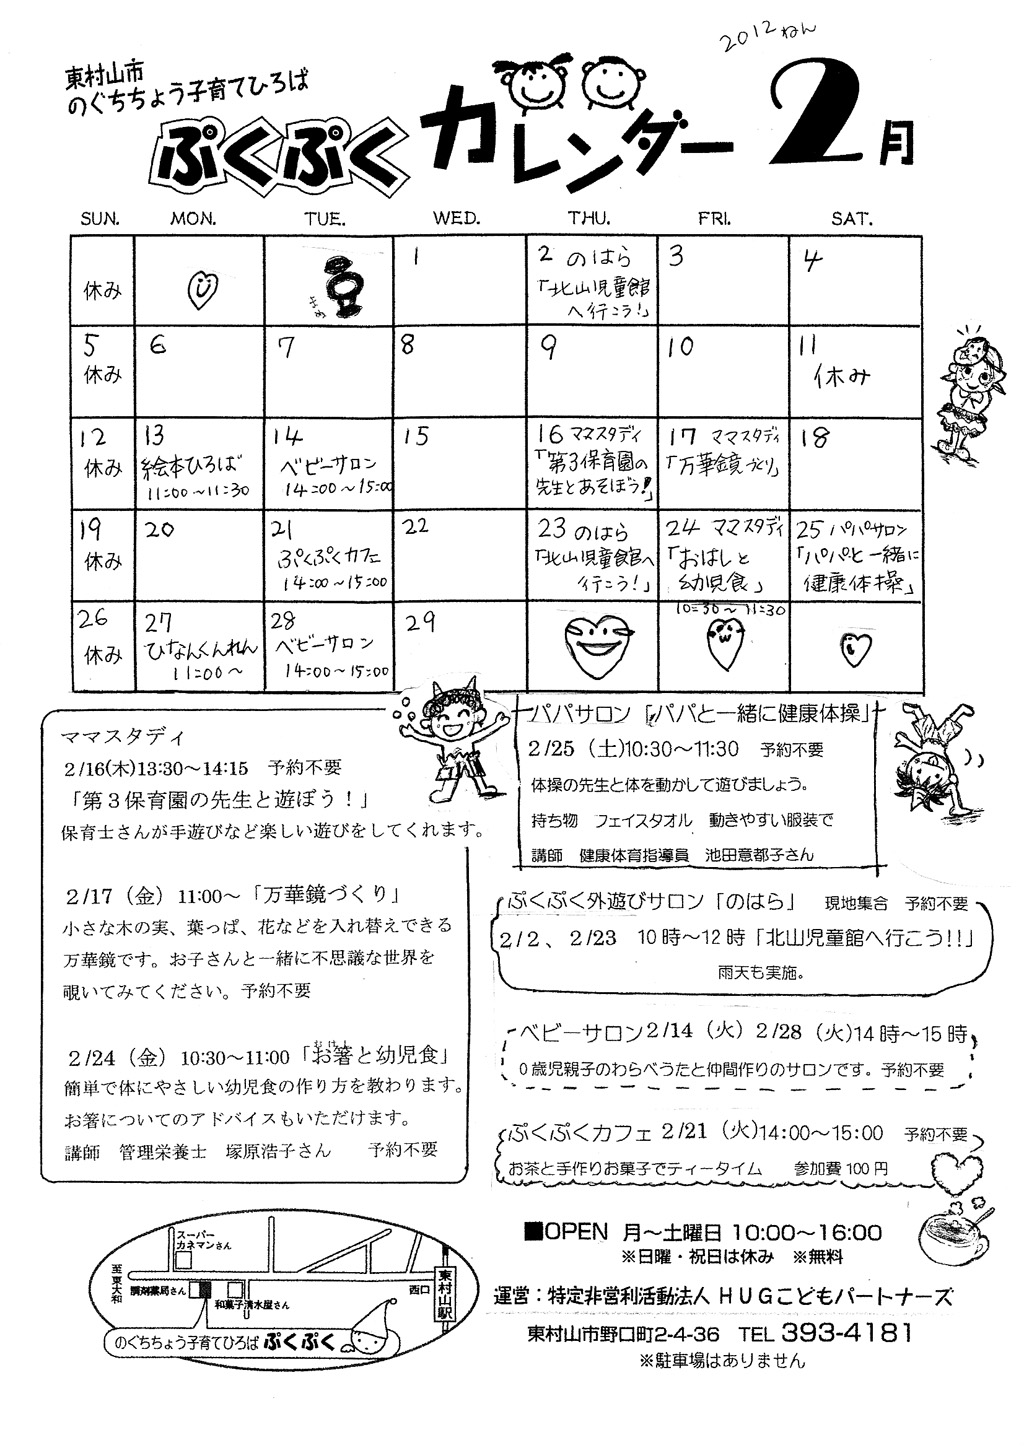 2012ねん
東村山市
のぐちちょう子育てひろば
ぷくぷくカレンダー 2月
SUN. MON. TUE. WED. THU. FRI. SAT.
休み
まめ
1
2 のはら
「北山児童館
へ行こう!」
3
4
5
休み
6
7
8
9
10
11
休み
12
休み
13
絵本ひろば
11:00～11:30
14
ベビーサロン
14:00～15:00
15
16 ママスタディ
「第3保育園の
先生とあそぼう!」
17 ママスタディ
「万華鏡づくり」
18
19
休み
20
21
ぷくぷくカフェ
14:00～15:00
22
23 のはら
「北山児童館へ
行こう!」
24 ママスタディ
「おはしと
幼児食」
10:30～11:30
25 パパサロン
「パパと一緒に
健康体操」
26
休み
27
ひなんくんれん
11:00～
28
ベビーサロン
14:00～15:00
29
ママスタディ
2/16(木)13:30～14:15 予約不要
「第３保育園の先生と遊ぼう！」
保育士さんが手遊びなど楽しい遊びをしてくれます。
2/17（金）11:00～「万華鏡づくり」
小さな木の実、葉っぱ、花などを入れ替えできる
万華鏡です。お子さんと一緒に不思議な世界を
覗いてみてください。予約不要
2/24（金）10:30～11:00「お箸と幼児食」
おはし
簡単で体にやさしい幼児食の作り方を教わります。
お箸についてのアドバイスもいただけます。
講師 管理栄養士 塚原浩子さん 予約不要
パパサロン「パパと一緒に健康体操」
2/25（土)10:30～11:30 予約不要
体操の先生と体を動かして遊びましょう。
持ち物 フェイスタオル 動きやすい服装で
講師 健康体育指導員 池田意都子さん
ぷくぷく外遊びサロン「のはら」 現地集合 予約不要
2/2、2/23 10時～12時「北山児童館へ行こう!!」
雨天も実施。
ベビーサロン2/14（火）2/28（火)14時～15時
０歳児親子のわらべうたと仲間作りのサロンです。予約不要
ぷくぷくカフェ2/21（火)14:00～15:00 予約不要
お茶と手作りお菓子でティータイム 参加費100円
■OPEN 月～土曜日10:00～16:00
※日曜・祝日は休み ※無料
運営：特定非営利活動法人ＨＵＧこどもパートナーズ
東村山市野口町2-4-36 TEL 393-4181
※駐車場はありません
スーパー
カネマンさん
至東大和
調剤薬局さん
和菓子清水屋さん
西口
東村山駅
のぐちちょう子育てひろば ぷくぷく